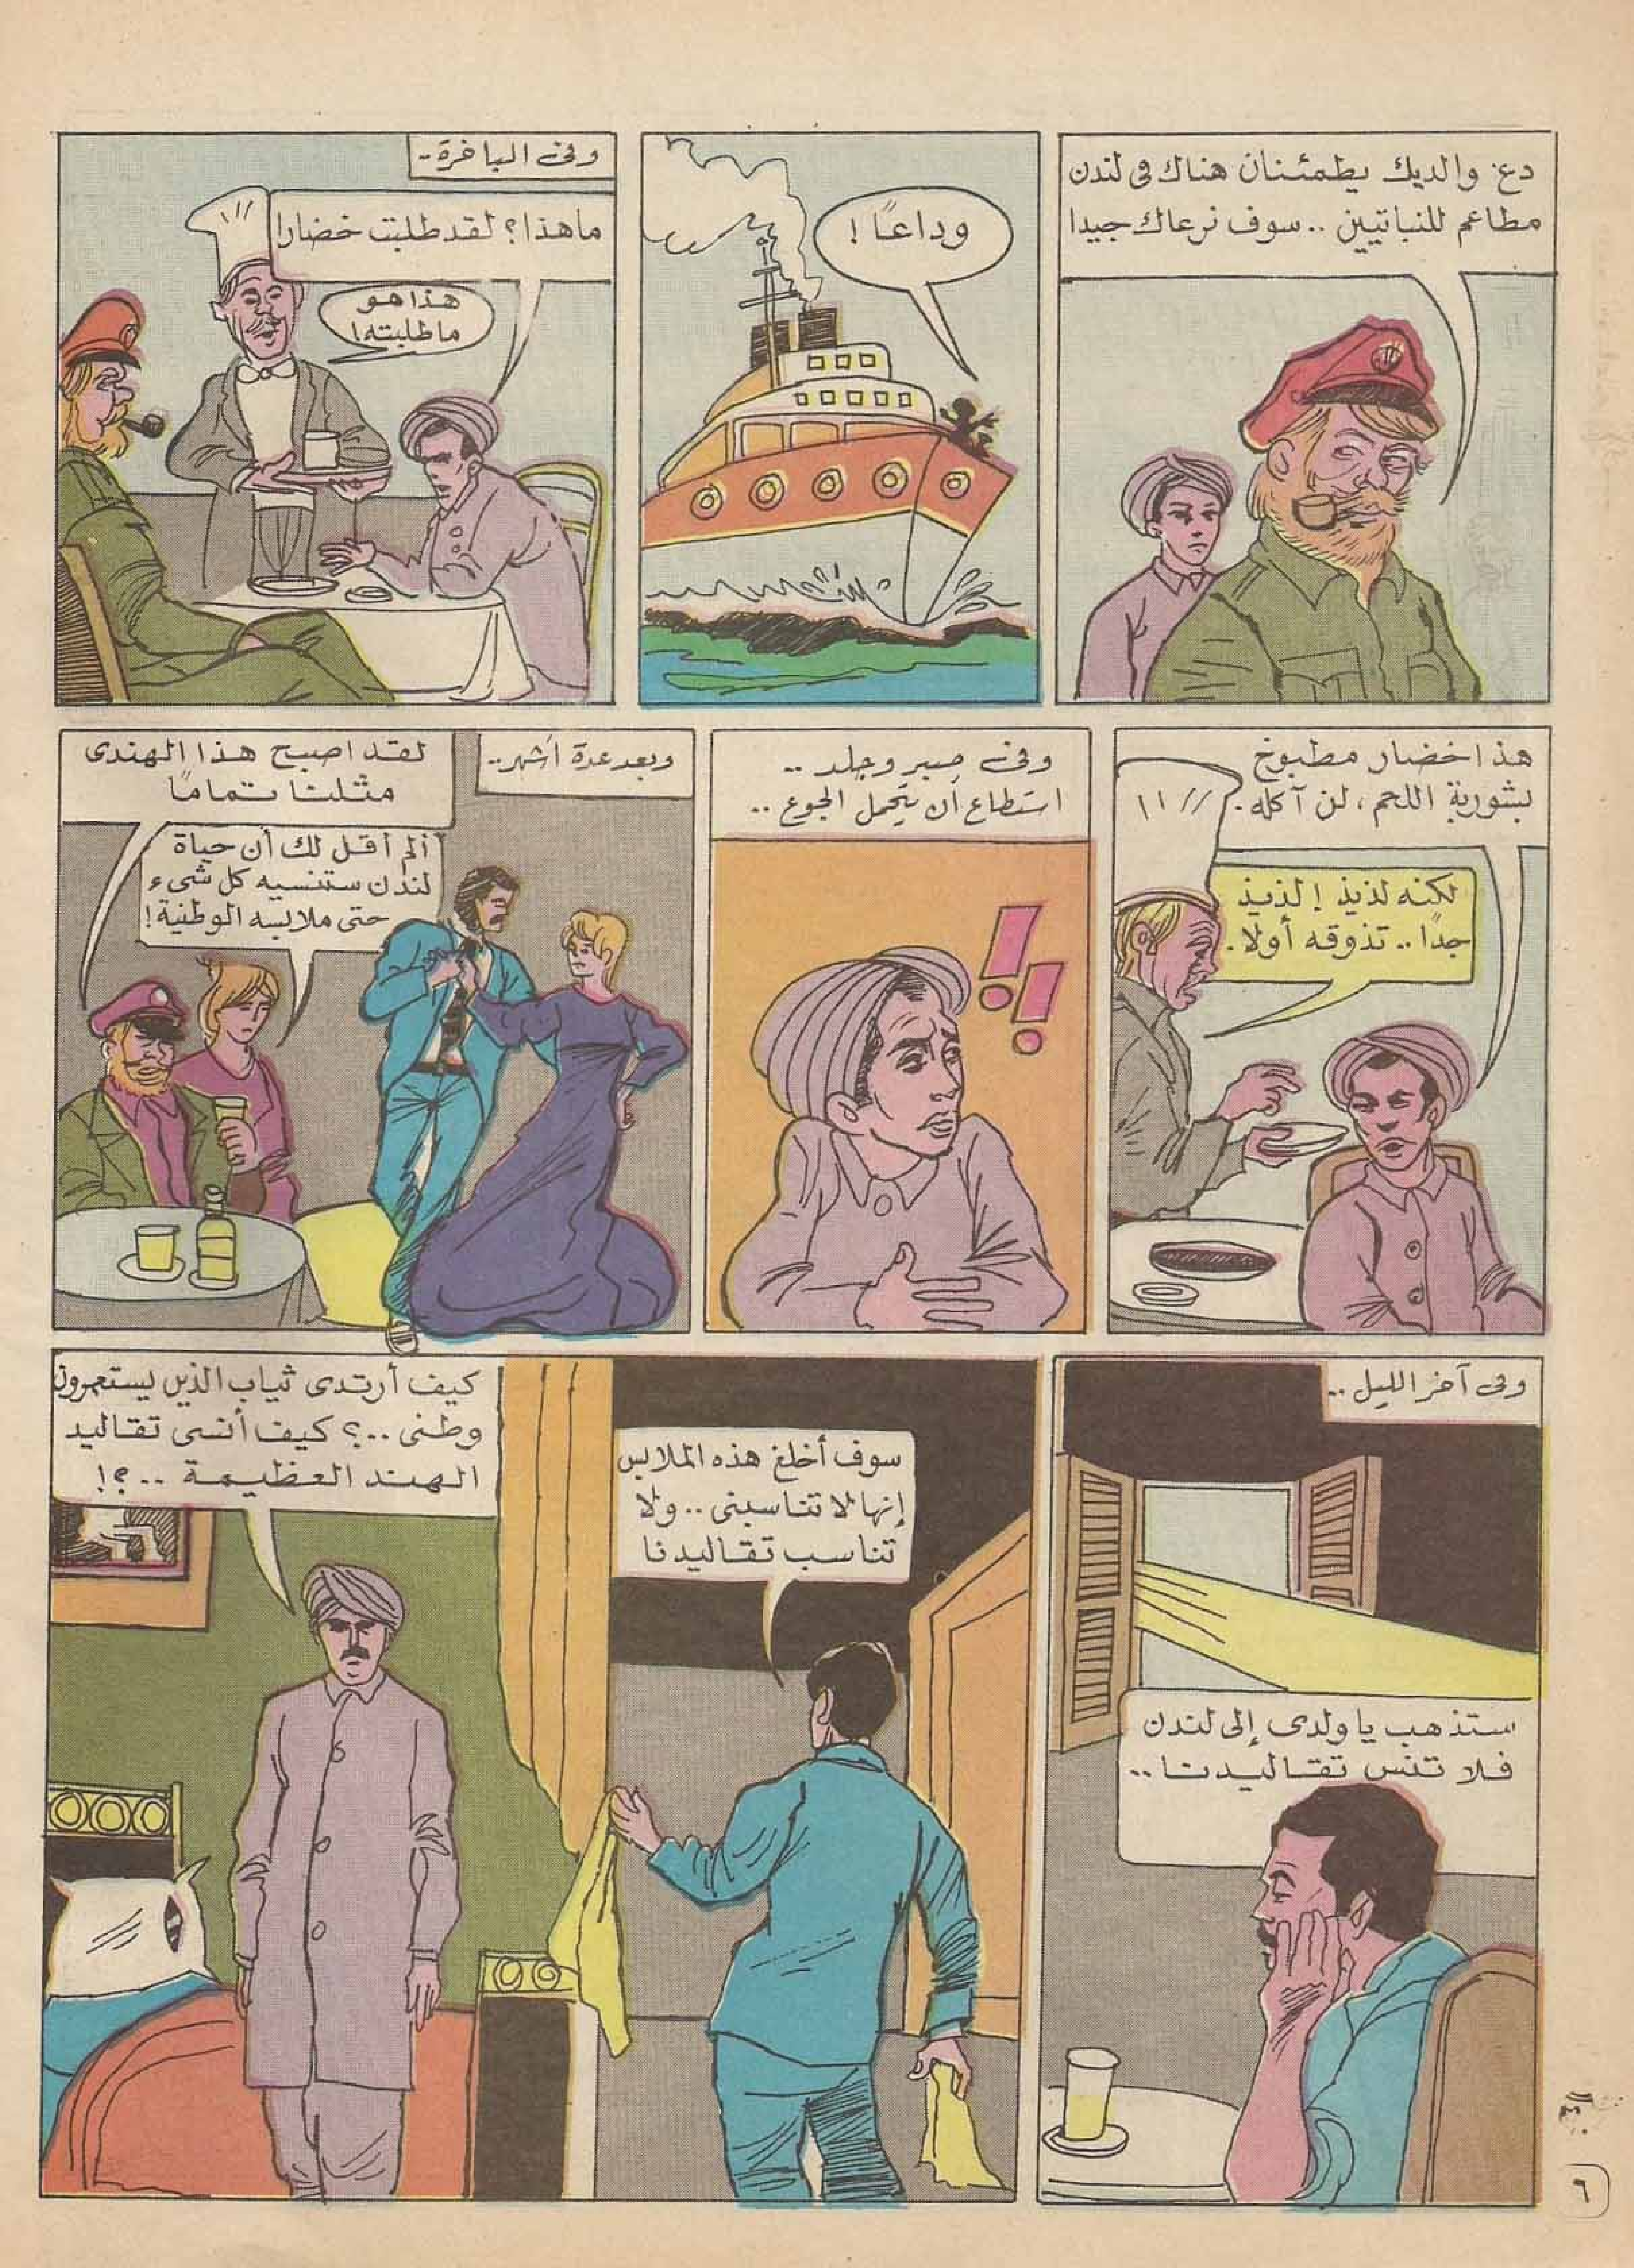 دع والديك يطمئنان هناك فى لندن
مطاعم للنباتيين .. سوف نرعاك جيدا
وداعًا !
وفى الباخرة ..
ماهذا؟ لقد طلبت خضارا
هذا هو
ما طلبته!
هذا خضار مطبوخ
بشوربة اللحم، لن آكله .
لكنه لذيذ ! لذيذ
جدًا .. تذوقه أولا .
وفى صبر وجلد ..
استطاع أن يتحمل الجوع ..
وبعد عدة أشهر ..
لقد اصبح هذا الهندى
مثلنا تمامًا
ألم أقل لك أن حياة
لندن ستنسيه كل شىء
حتى ملابسه الوطنية!
وفى آخر الليل ..
ستذهب يا ولدى إلى لندن
فلا تنس تقاليدنا ..
سوف أخلع هذه الملابس
إنها لا تناسبنى .. ولا
تناسب تقاليدنا
كيف أرتدى ثياب الذين يستعمرون
وطنى ..؟ كيف أنسى تقاليد
الهند العظيمة ..؟!
٦